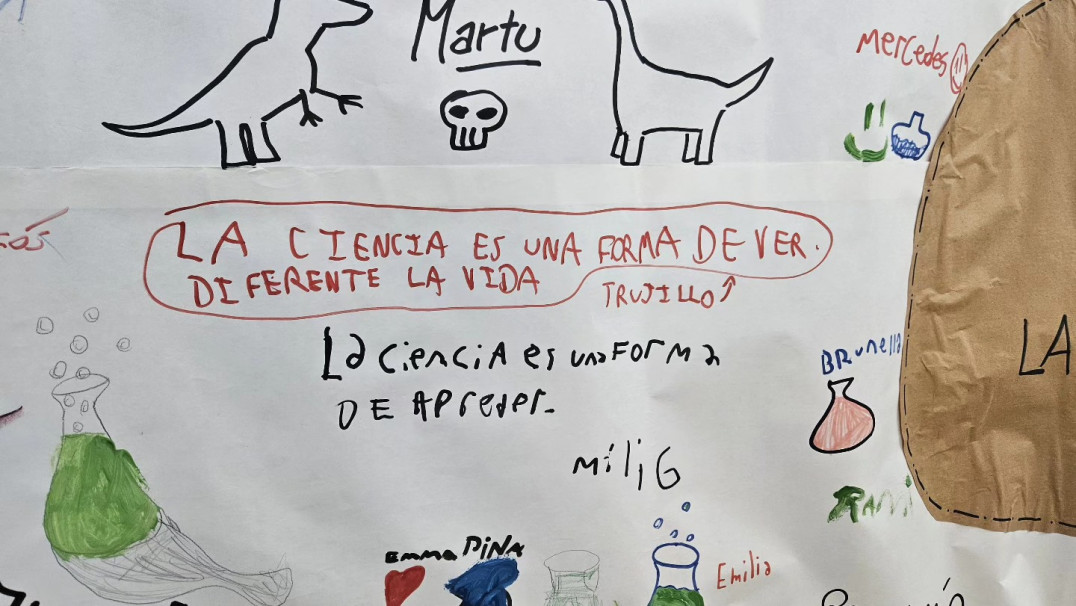 Martu
Mercedes
LA CIENCIA ES UNA FORMA DE VER.
DIFERENTE LA VIDA
TRUJILLO
La ciencia es una forma
DE APreder.
miliG
BRunella
LA
Rami
Emma
PINA
Emilia